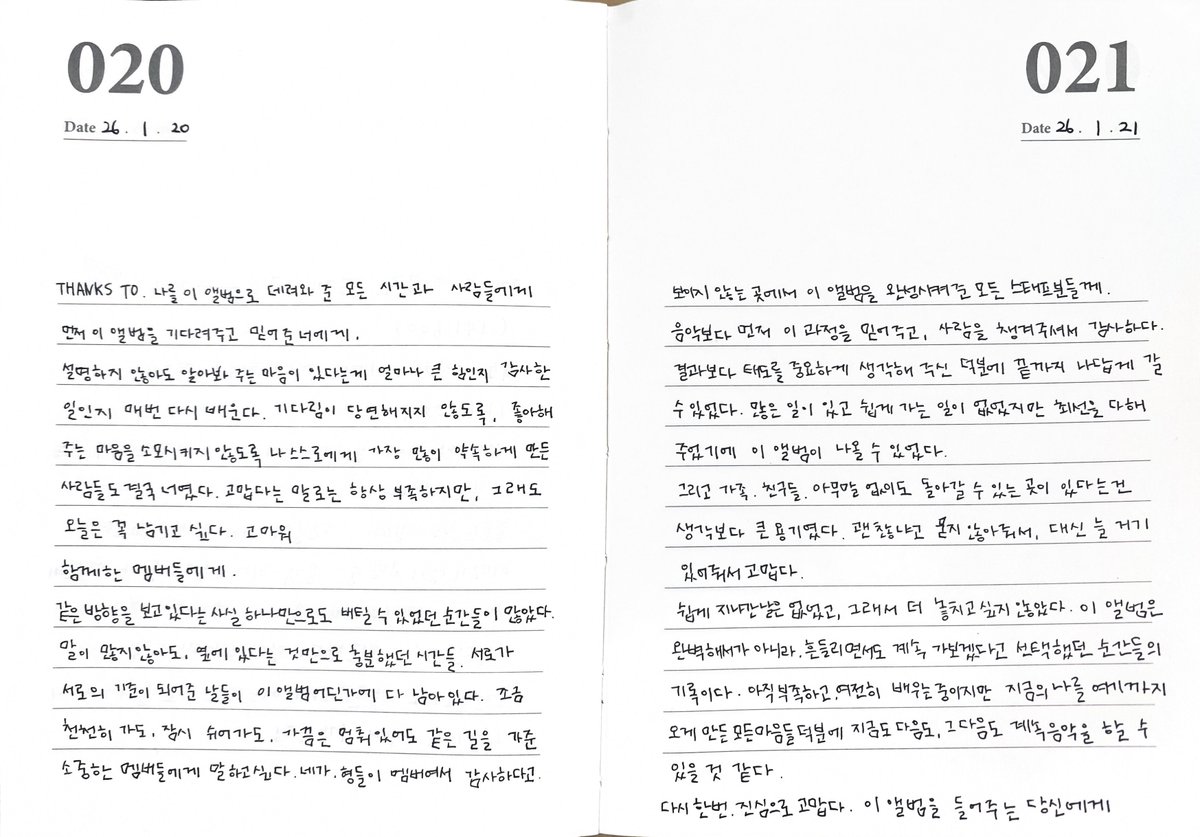 020
Date 26 . 1 . 20
THANKS TO. 나를 이 앨범으로 데려와 준 모든 시간과 사람들에게
먼저 이 앨범을 기다려주고 믿어준 너에게.
설명하지 않아도 알아봐 주는 마음이 있다는게 얼마나 큰 힘인지 감사한
일인지 매번 다시 배운다. 기다림이 당연해지지 않도록, 좋아해
주는 마음을 소모시키지 않도록 나 스스로에게 가장 많이 약속하게 만든
사람들도 결국 너였다. 고맙다는 말로는 항상 부족하지만, 그래도
오늘은 꼭 남기고 싶다. 고마워
함께한 멤버들에게.
같은 방향을 보고 있다는 사실 하나만으로도 버틸 수 있었던 순간들이 많았다.
말이 많지 않아도, 옆에 있다는 것만으로 충분했던 시간들. 서로가
서로의 기준이 되어준 날들이 이 앨범 어딘가에 다 남아있다. 조금
천천히 가도, 잠시 쉬어가도, 가끔은 멈춰 있어도 같은 길을 가준
소중한 멤버들에게 말하고싶다. 네가, 형들이 멤버여서 감사하다고.
021
Date 26 . 1 . 21
보이지 않는 곳에서 이 앨범을 완성시켜준 모든 스태프분들께.
음악보다 먼저 이 과정을 믿어주고, 사람을 챙겨주셔서 감사하다.
결과보다 태도를 중요하게 생각해 주신 덕분에 끝까지 나답게 갈
수 있었다. 많은 일이 있고 쉽게 가는 일이 없었지만 최선을 다해
주었기에 이 앨범이 나올 수 있었다.
그리고 가족. 친구들. 아무말 없이도 돌아갈 수 있는 곳이 있다는건
생각보다 큰 용기였다. 괜찮냐고 묻지 않아줘서, 대신 늘 거기
있어줘서 고맙다.
쉽게 지나간 날은 없었고, 그래서 더 놓치고 싶지 않았다. 이 앨범은
완벽해서가 아니라. 흔들리면서도 계속 가보겠다고 선택했던 순간들의
기록이다. 아직 부족하고, 여전히 배우는 중이지만 지금의 나를 여기까지
오게 만든 모든 마음들 덕분에 지금도 다음도, 그 다음도 계속 음악을 할 수
있을 것 같다.
다시 한번. 진심으로 고맙다. 이 앨범을 들어주는 당신에게